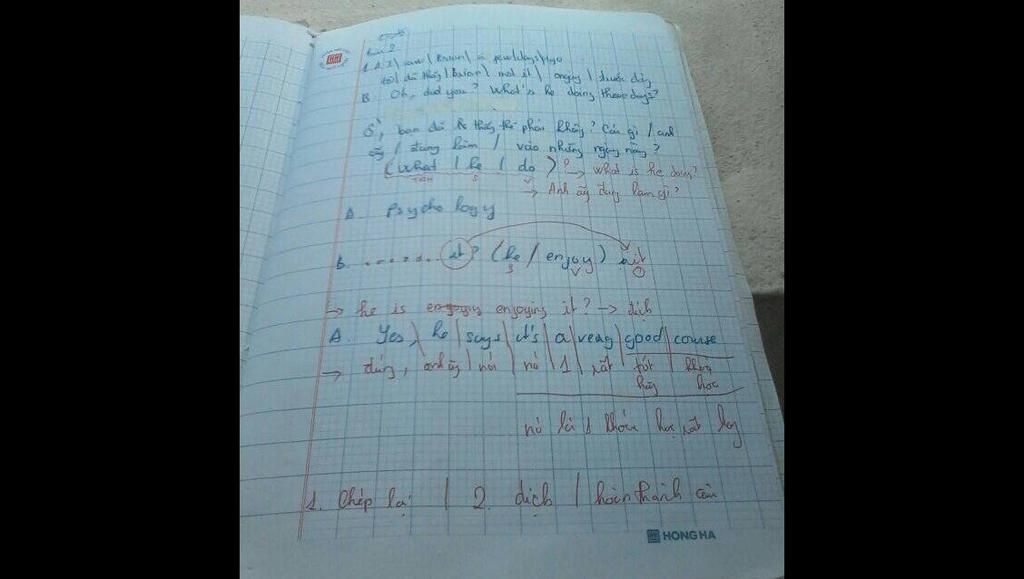 Bài 2
1. A. I | saw | Brian | a few | days | ago
tôi | đã thấy | Brian | một ít | ngày | trước đây
B. Oh, did you? What's he doing these days?
Ồ, bạn đã thấy thế phải không? Cái gì / anh
ấy / đang làm / vào những ngày này?
(what / he / do)? → What is he doing?
S V
→ Anh ấy đang làm gì?
A. Psychology
B. ........ it? (he / enjoy) it
S V O
→ he is enjoying it? → dịch
A. Yes, he | says | it's | a | very | good | course
→ đúng, anh ấy | nói | nó | 1 | rất | tốt | khóa
hay học
nó là 1 khóa học rất hay
1. Chép lại | 2. dịch | hoàn thành câu
HONG HA